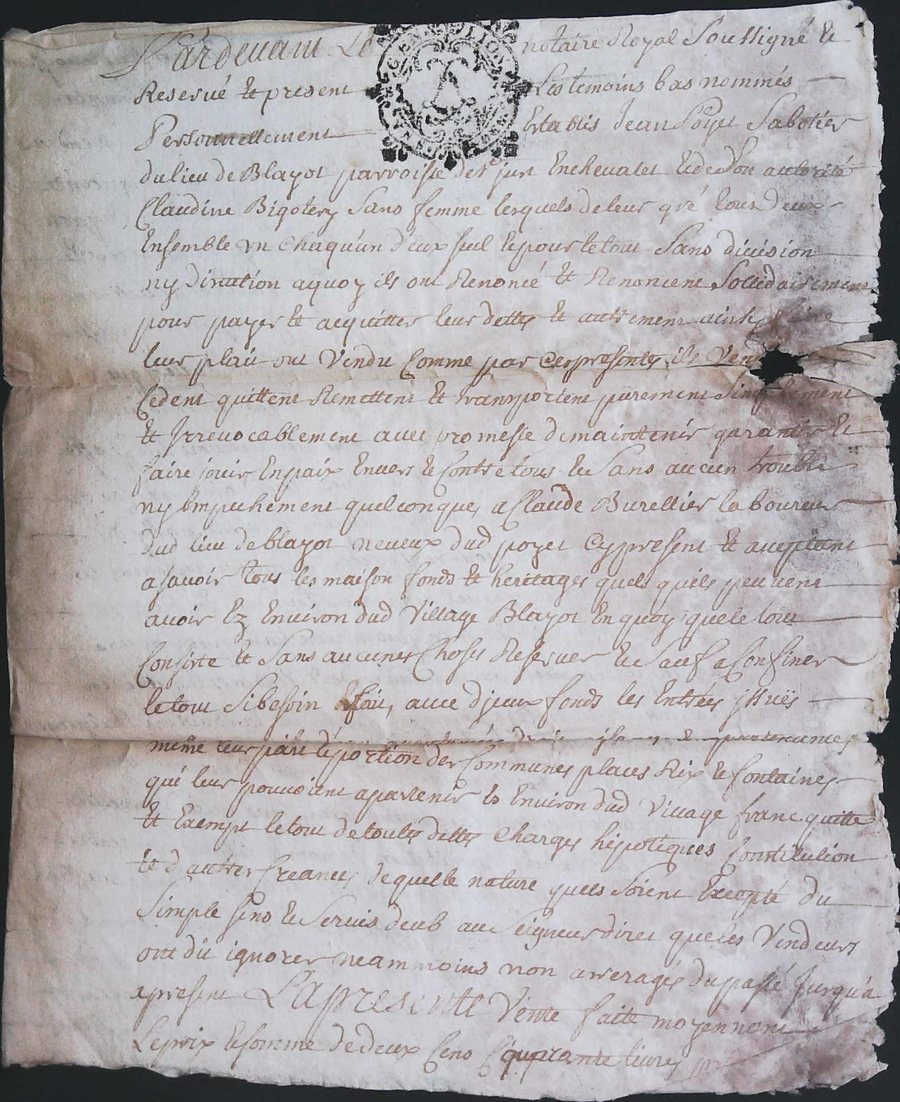 Pardevant Le notaire Royal Soussigné et
Reservé et present Les temoins bas nommés
Personnellement Establis Jean Poyet Sabotier
du lieu de Blayot parroisse de St just Enchevalet et de son autorité
Claudine Bigotery Sans femme lesquels de leur gré tous deux
Ensemble un Chaqu'un d'eux seul et pour le tout Sans division
ny a quoy ils ont Renoncé et Renoncent Sollidairement
pour payer et acquitter leur dettes et autrement
leur plait ont Vendu Comme par Ces presentes ils
Cedent quittent Remettent et transportent purement Simplement
et Irrevocablement avec promesse de maintenir garantir et
faire jouir En paix Envers et Contre tous et Sans aucun trouble
ny Empechement quelconque, a Claude Burellier laboureur
dud lieu de blayot neveux dud poyet Cy present et acceptant
asavoir tous les maison fonds et heritages quels quils peuvent
avoir Ez Environ dud Village Blayot En quoy que le tout
Consiste et Sans aucunes Choses Reserver et Sauf a Confiner
le tout Si besoin Est fait, avec d'jceux fonds les Entrées jssuës
même leur part et portion des Communes places Rix et fontaines
qui leur pouvoient apartenir Es Environ dud Village franc quitte
et Exempt le tout de toutes dettes Charges hipotiques Constitution
et d'autres Creances de quelle nature quels Soient Excepté du
Simple Sens et Servis deub au Seigneur direct que les Vendeurs
ont dit ignorer neammoins non arreragés du passé Jusqu'a
apresent La presente Vente faite moyennant
Le prix et somme de deux Cens quarante livres